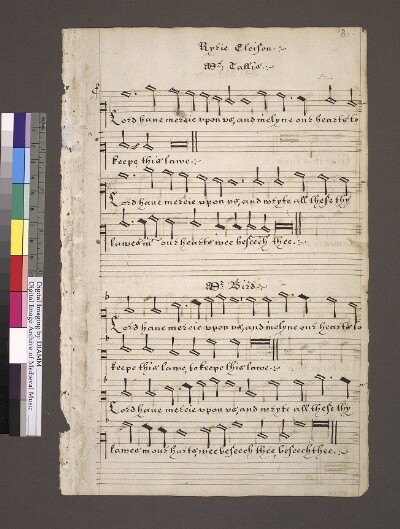 Kyrie Eleison:~
Mr: Tallis:~
Lord haue mercie vpon vs, and inclyne our hearts to
keepe this lawe:~
Lord haue mercie vpon vs, and wryte all these thy
lawes in our hearts wee beseech thee:~
Mr Bird:~
Lord haue mercie vpon vs, and inclyne our hearts to
keepe this lawe, to keepe this lawe:~
Lord haue mercie vpon vs, and wryte all these thy
lawes in our harts wee beseech thee, beseech thee:~
Digital Imaging by DIAMM
Digital Image Archive of Medieval Music